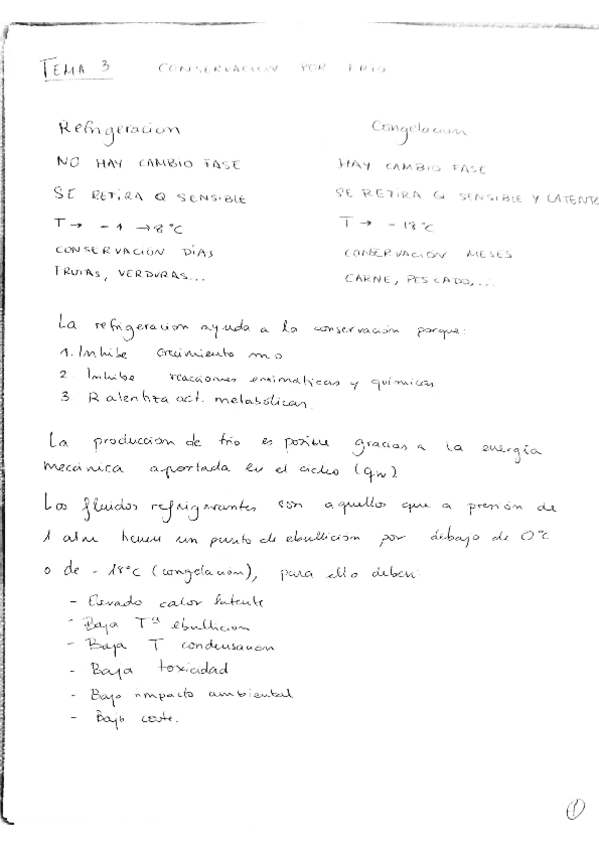 TEMA 3 CONSERVACION POR FRIO
Refrigeracion Congelacion
NO HAY CAMBIO FASE HAY CAMBIO FASE
SE RETIRA Q SENSIBLE SE RETIRA Q SENSIBLE Y LATENTE
T → -1 → 8°C T → -18°C
CONSERVACIÓN DÍAS CONSERVACIÓN MESES
FRUTAS, VERDURAS... CARNE, PESCADO,...
La refrigeracion ayuda a la conservacion porque:
1. Inhibe crecimiento mo
2. Inhibe reacciones enzimáticas y químicas
3. Ralentiza act. metabólicas.
La produccion de frio es posible gracias a la energía
mecánica aportada en el ciclo (qw)
Los fluidos refrigerantes son aquellos que a presión de
1 atm tienen un punto de ebullición por debajo de 0°C
o de -18°C (congelacion), para ello deben:
- Elevado calor latente
- Baja Tª ebullicion
- Baja T condensacion
- Baja toxicidad
- Bajo impacto ambiental
- Bajo coste.
1